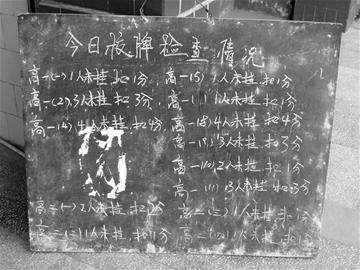 今日板牌检查情况
高一(一) 1人未挂 扣1分
高一(2) 3人未挂 扣3分
高一(4) 4人未挂 扣4分
高一(5) 1人未挂 扣1分
高一 1人未挂 扣1分
高一(8) 4人未挂 扣4分
高一(9) 3人未挂 扣3分
高一(10) 2人未挂 扣
高一(11) 3人未挂 扣3分
高二(一) 2人未挂 扣2分
高二(二) 1人未挂 扣1分
高二 1人未挂 扣1分
高二 1人未挂 扣1分